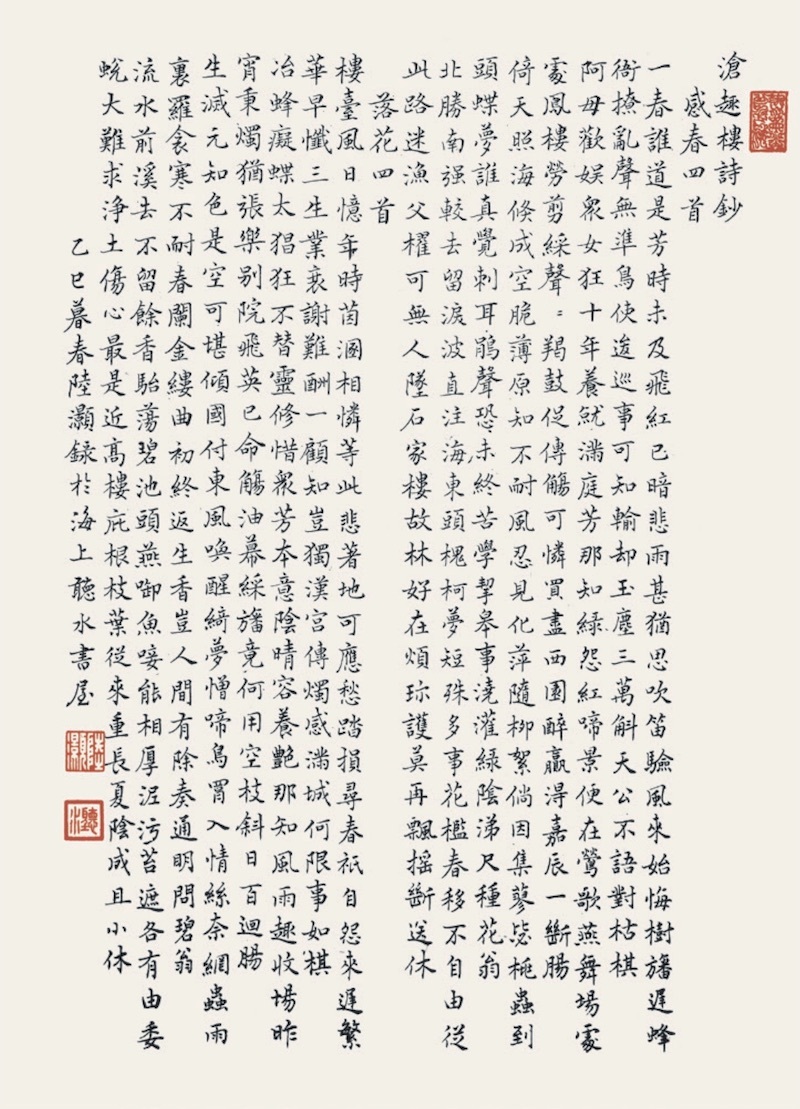 滄趣樓詩鈔
感春四首
一春誰道是芳時未及飛紅已暗悲雨甚猶思吹笛驗風來始悔樹旛遲蜂
衙撩亂聲無準鳥使逡巡事可知輸却玉塵三萬斛天公不語對枯棋
阿母歡娛衆女狂十年養就滿庭芳那知綠怨紅啼景便在鶯歌燕舞場處
處鳳樓勞剪綵聲〻羯鼓促傳觴可憐買盡西園醉贏得嘉辰一斷腸
倚天照海倏成空脆薄原知不耐風忍見化萍隨柳絮倘因集蓼毖桃蟲到
頭蝶夢誰真覺刺耳鵑聲恐未終苦學挈皋事澆灌綠陰涕尺種花翁
北勝南强較去留淚波直注海東頭槐柯夢短殊多事花檻春移不自由從
此路迷漁父櫂可無人墜石家樓故林好在煩珎護莫再飄搖斷送休
落花四首
樓臺風日憶年時茵溷相憐等此悲著地可應愁踏損尋春祇自怨來遲繁
華早懺三生業衰謝難酬一顧知豈獨漢宮傳燭感滿城何限事如棋
冶蜂癡蝶太猖狂不替靈修惜衆芳本意陰晴容養艷那知風雨趣收場昨
宵秉燭猶張樂別院飛英已命觴油幕綵旛竟何用空枝斜日百迴腸
生滅元知色是空可堪傾國付東風喚醒綺夢憎啼鳥罥入情絲奈網蟲雨
裏羅衾寒不耐春闌金縷曲初終返生香豈人間有除奏通明問碧翁
流水前溪去不留餘香駘蕩碧池頭燕啣魚唼能相厚泥污苔遮各有由委
蛻大難求淨土傷心最是近高樓庇根枝葉從來重長夏陰成且小休
乙巳暮春陸灝録於海上聽水書屋
陸灝
聽水